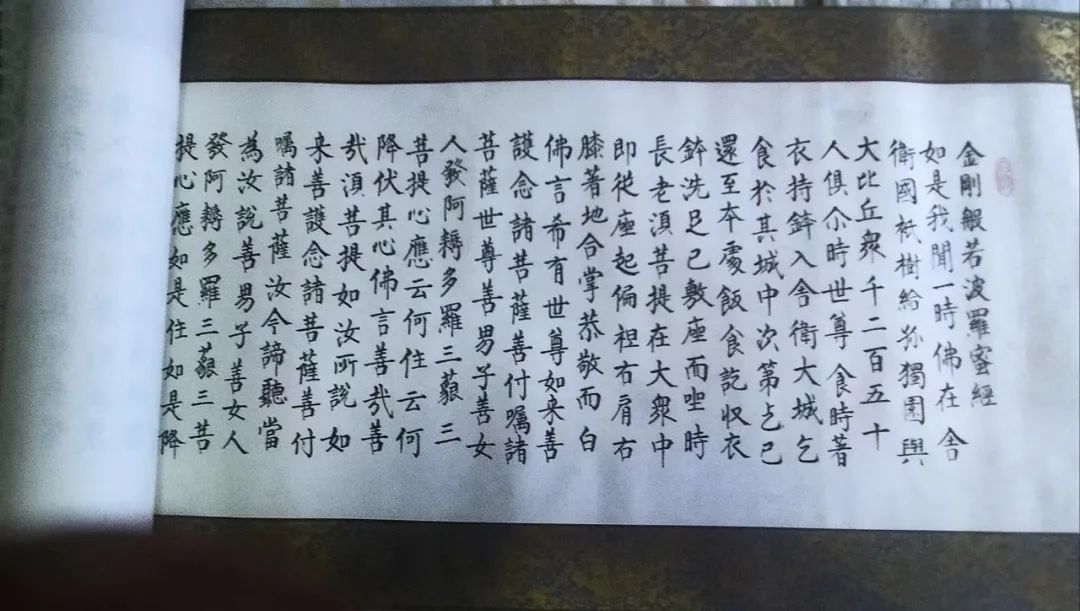 金剛般若波羅蜜經
如是我聞一時佛在舍
衛國衹樹給孤獨園與
大比丘衆千二百五十
人俱尒時世尊食時著
衣持鉢入舍衛大城乞
食於其城中次第乞已
還至本處飯食訖收衣
鉢洗足已敷座而坐時
長老湏菩提在大衆中
即從座起偏袒右肩右
膝著地合掌恭敬而白
佛言希有世尊如来善
護念諸菩薩善付囑諸
菩薩世尊善男子善女
人發阿耨多羅三藐三
菩提心應云何住云何
降伏其心佛言善哉善
哉湏菩提如汝所說如
来善護念諸菩薩善付
囑諸菩薩汝今諦聽當
為汝說善男子善女人
發阿耨多羅三藐三菩
提心應如是住如是降